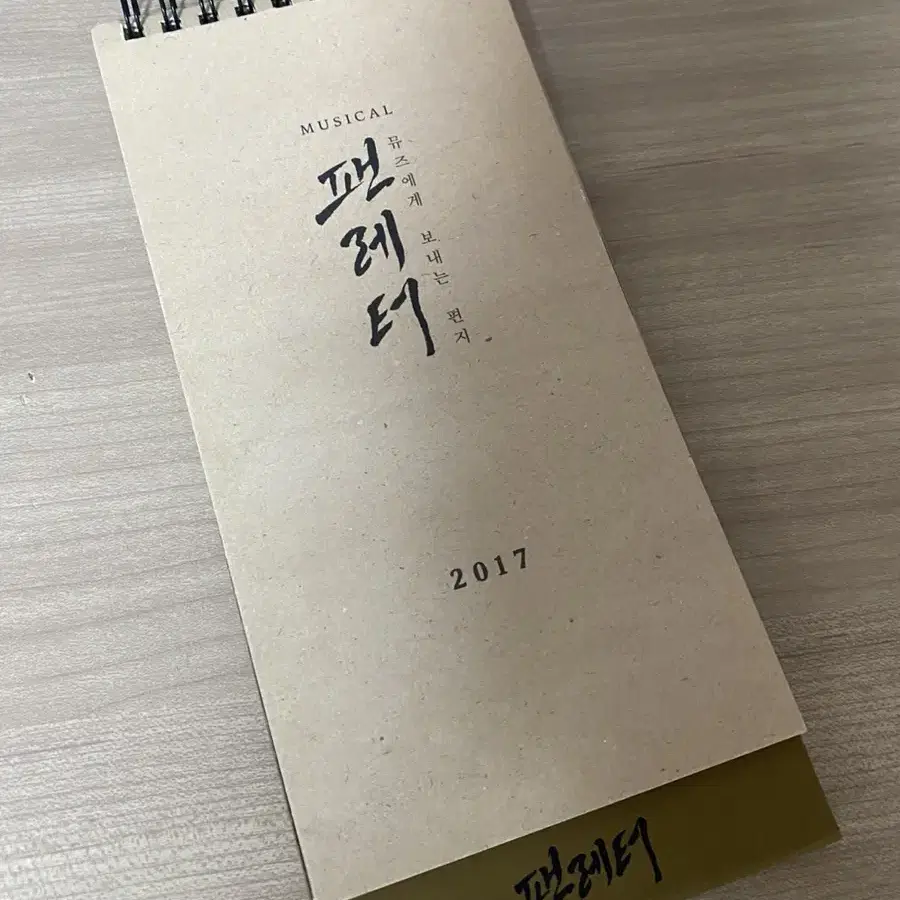 MUSICAL
팬레터
뮤즈에게 보내는 편지
2017
팬레터